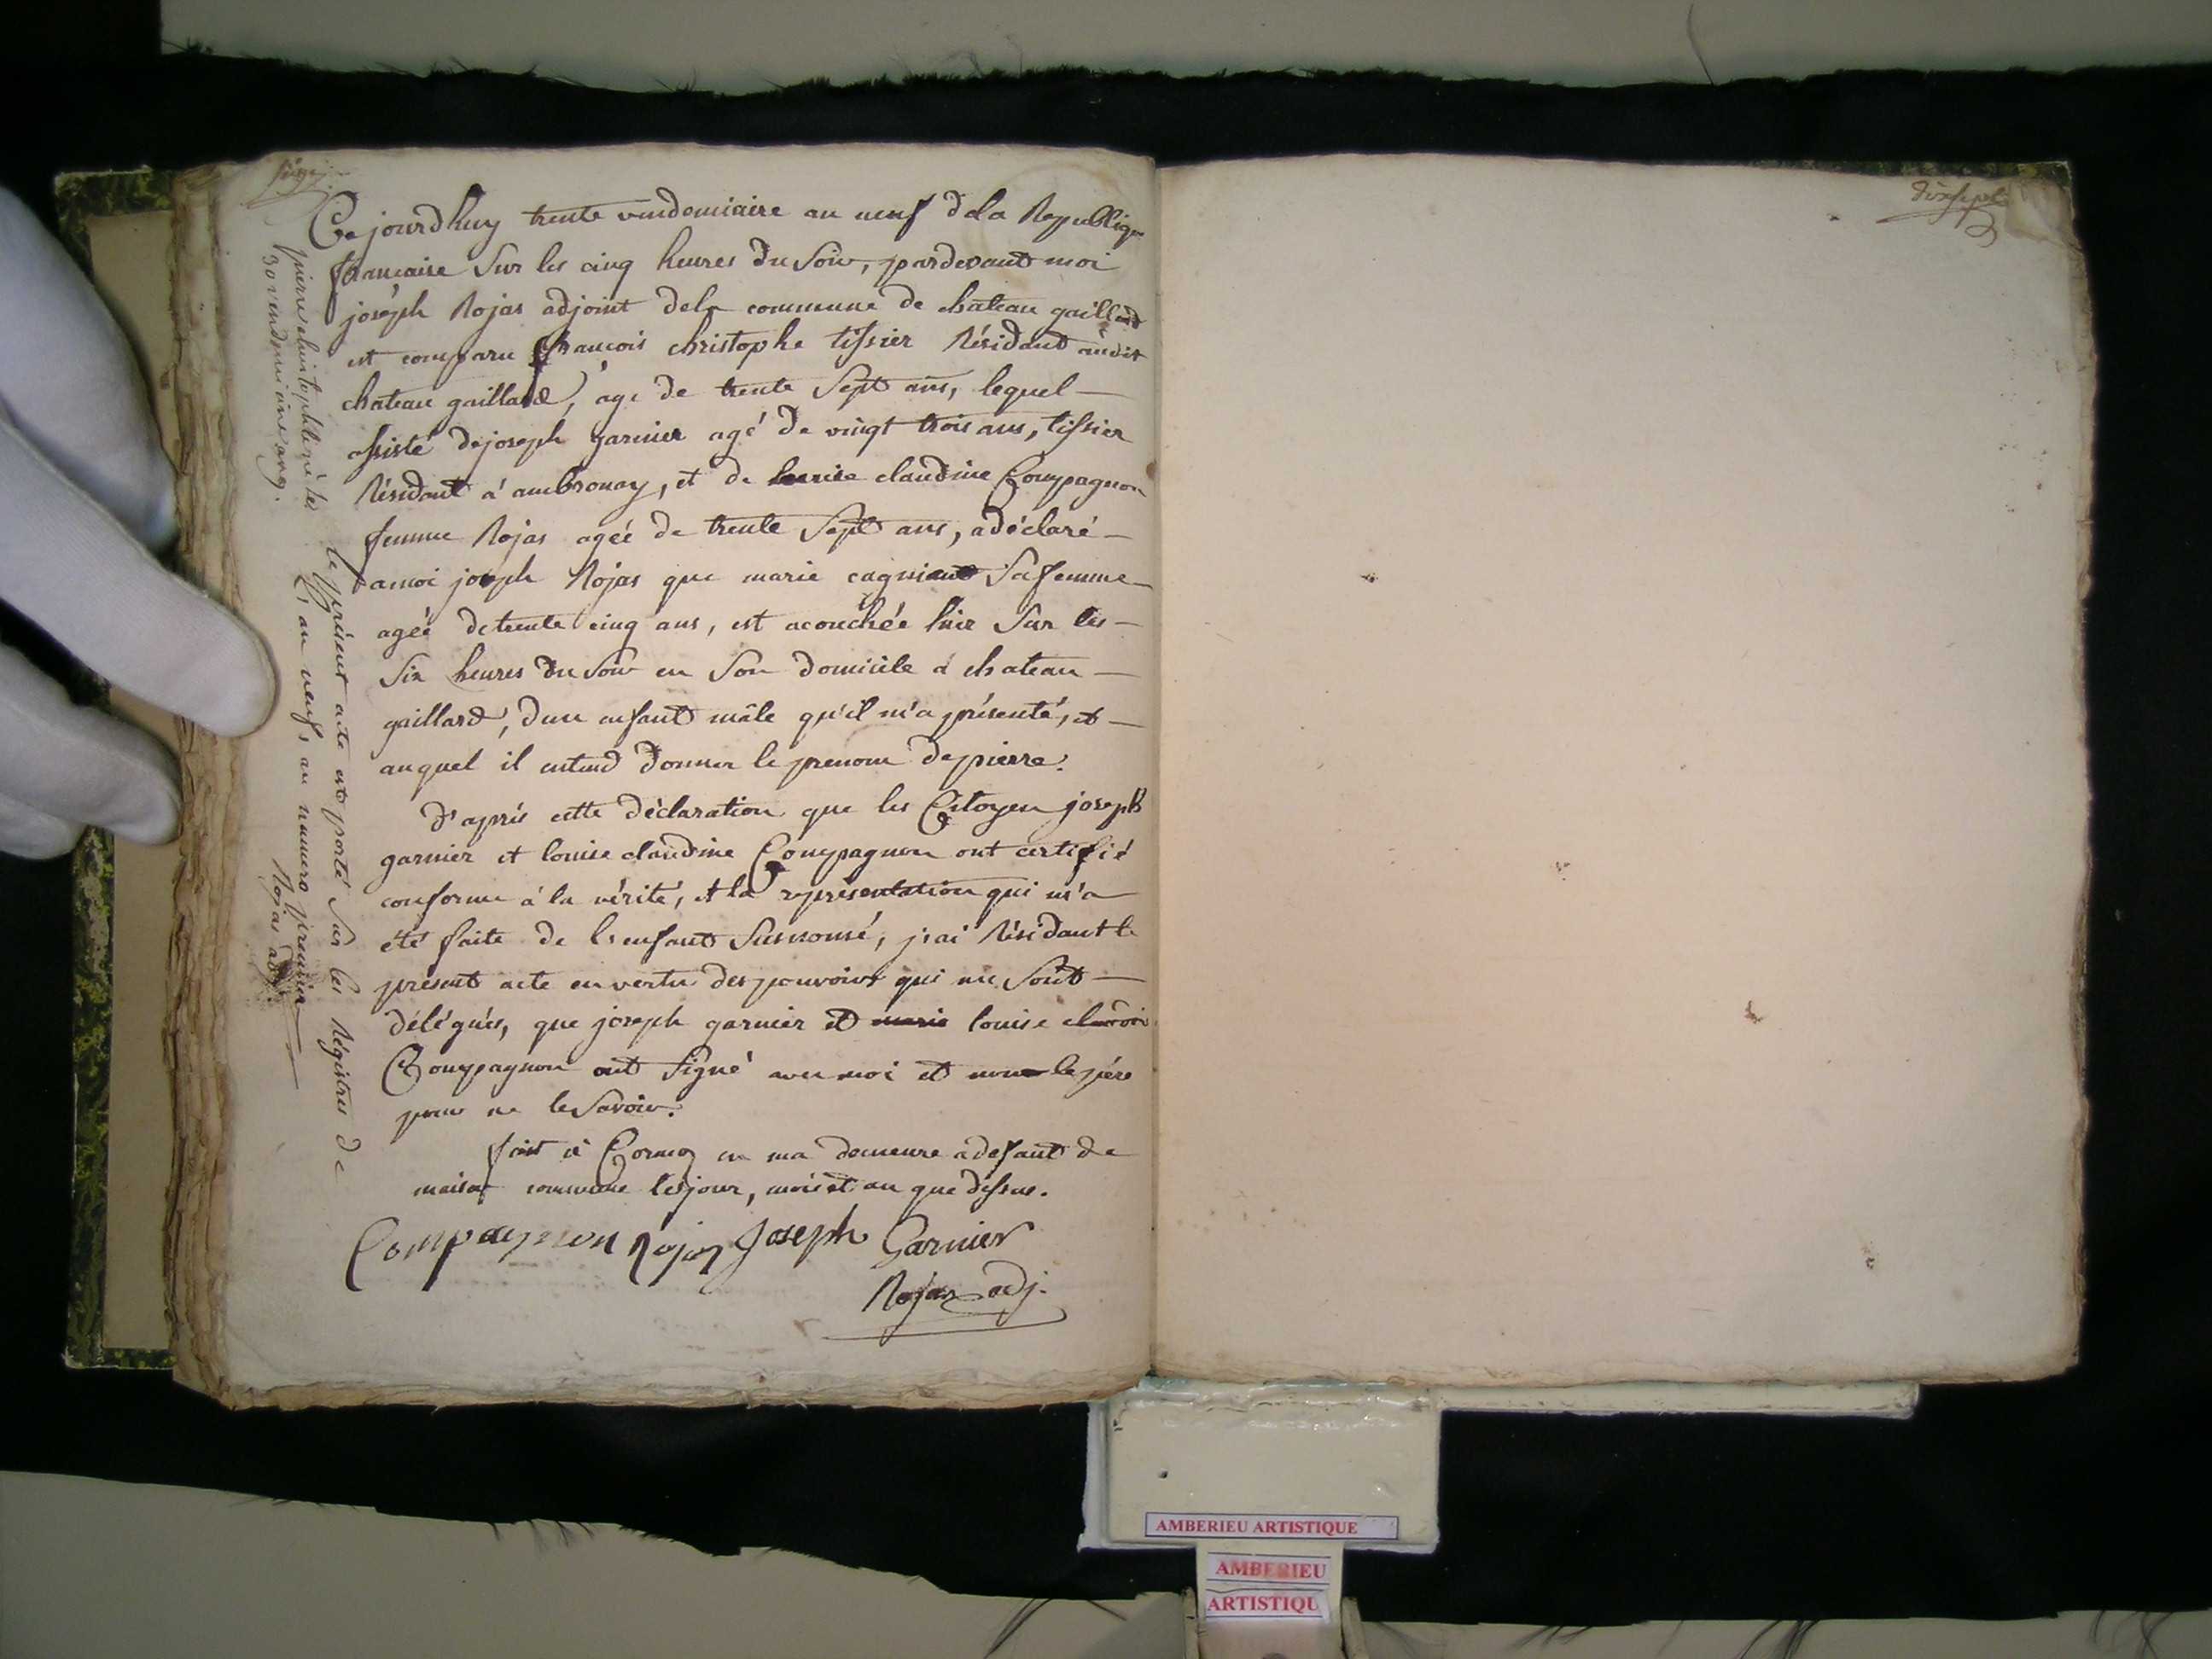 Cejourdhuy trente vendemiaire an neuf dela Republique
francaise Sur les cinq heures du Soir, pardevant moi
joséph Rojas adjoint dela commune de chateau gaillard
est comparu francois christophe tissier Résidant audit
chateau gaillard, agé de trente Sept ans, lequel
assisté dejoseph garnier agé de vingt trois ans, tissier
Résidant à ambronay, et de louise claudine Compagnon
femme Rojas ageé de trente Sept ans, adéclaré
amoi joseph Rojas que marie cagniant Safemme
ageé detrente cinq ans, est acouchée hier Sur les
Six heures du Soir en Son domicile à chateau
gaillard, dun enfant mâle qu'il m'a présenté, et
auquel il entend donner le prenom depierre.
d'aprés cette déclaration que les Citoyen joseph
garnier et louise claudine Compagnon ont certifié
conforme à la vérité, et la représentation qui m'a
été faite de l'enfant Susnomé, j'ai Résidant le
présent acte en vertu des pouvoirs qui me Sont
délégués, que joseph garnier et marie louise claudi
Compagnon ont Signé avec moi et non le pére
pour ne le Savoir.
fait à Cormoz en ma demeure adefaut de
maison commune lesjour, mois et an que dessus.
Compagnon Rojas Joseph Garnier
Rojas adj.
pierre christophle né le
30 vendemiaire an 9.
le présent acte est porté sur les Régistres de
l'an neuf, au numero premier
Rojas adj.
dixsept
AMBERIEU ARTISTIQUE
AMBERIEU
ARTISTIQU